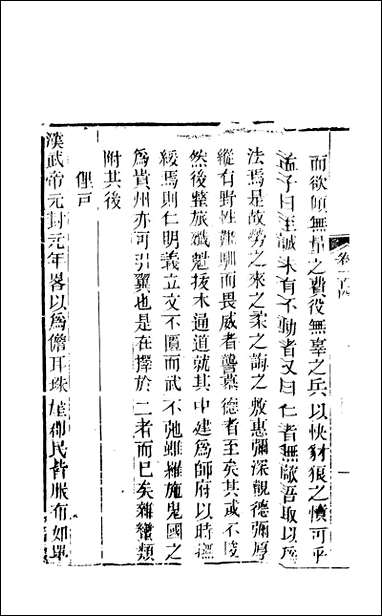 而欲傾無量之費役無辜之兵以快豺狼之憤可乎
孟子曰至誠未有不動者又曰仁者無敵吾取以為
法焉是故勞之來之柔之誨之敷惠彌深觀德彌厚
縱有野性難馴而畏威者讋慕德者至矣其或不悛
然後整旅殲魁拔木通道就其中建為師府以時撫
綏焉則仁明義立文不匱而武不弛雖羅施鬼國之
為貴州亦可引翼也是在擇於二者而已矣雜蠻類
附其後
俚戸
漢武帝元封元年畧以為儋耳珠崖郡民皆服布如單
卷一百四